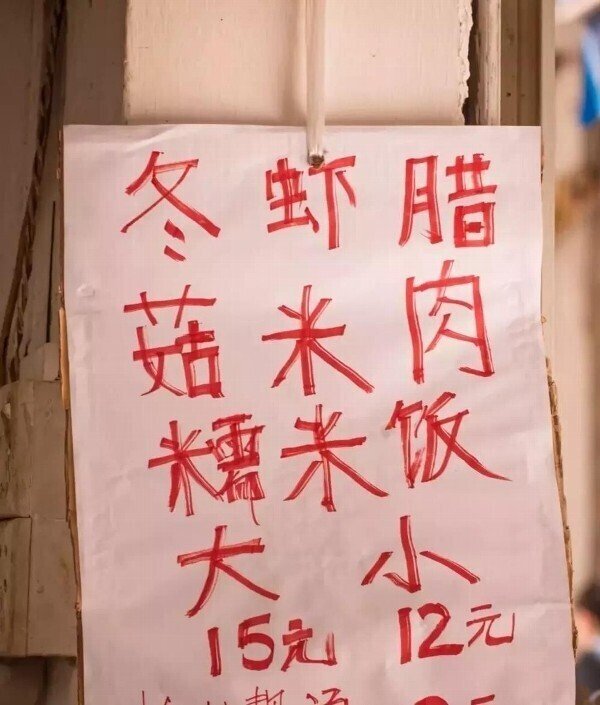 冬菇
虾米
腊肉
糯米饭
大 小
15元 12元